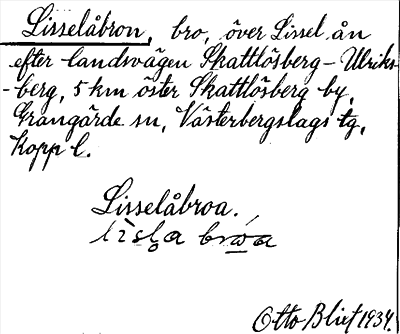 Lisselåbron, bro, över Lissel ån
efter landsvägen Skattlösberg - Ulriks-
-berg, 5 km öster Skattlösberg by,
Grangärde sn, Västerbergslags tg,
Kopp l.
Lisselåbroa.
Otto Blixt 1934.